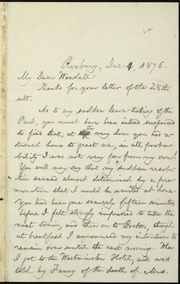 Roxbury, Dec. 4, 1876.
My Dear Wardell:
Thanks for your letter of the 28th
ult.
As to my sudden leave-taking of the
Park, you must have been indeed surprised
to find that, at the very hour you had as-
sured
I was not very far from my own!
You will may say that my sudden resolu-
tion seems almost determined by a pre-
monition that I would be wanted at home.
You had been gone scarcely fifteen minutes
before I felt strongly impressed to take the
next train, and then on to Boston, though
at breakfast I announced my intention to
remain over until the next morning. When
I got to the Westminster Hotel, and was
told, by Fanny of the death of Mrs.